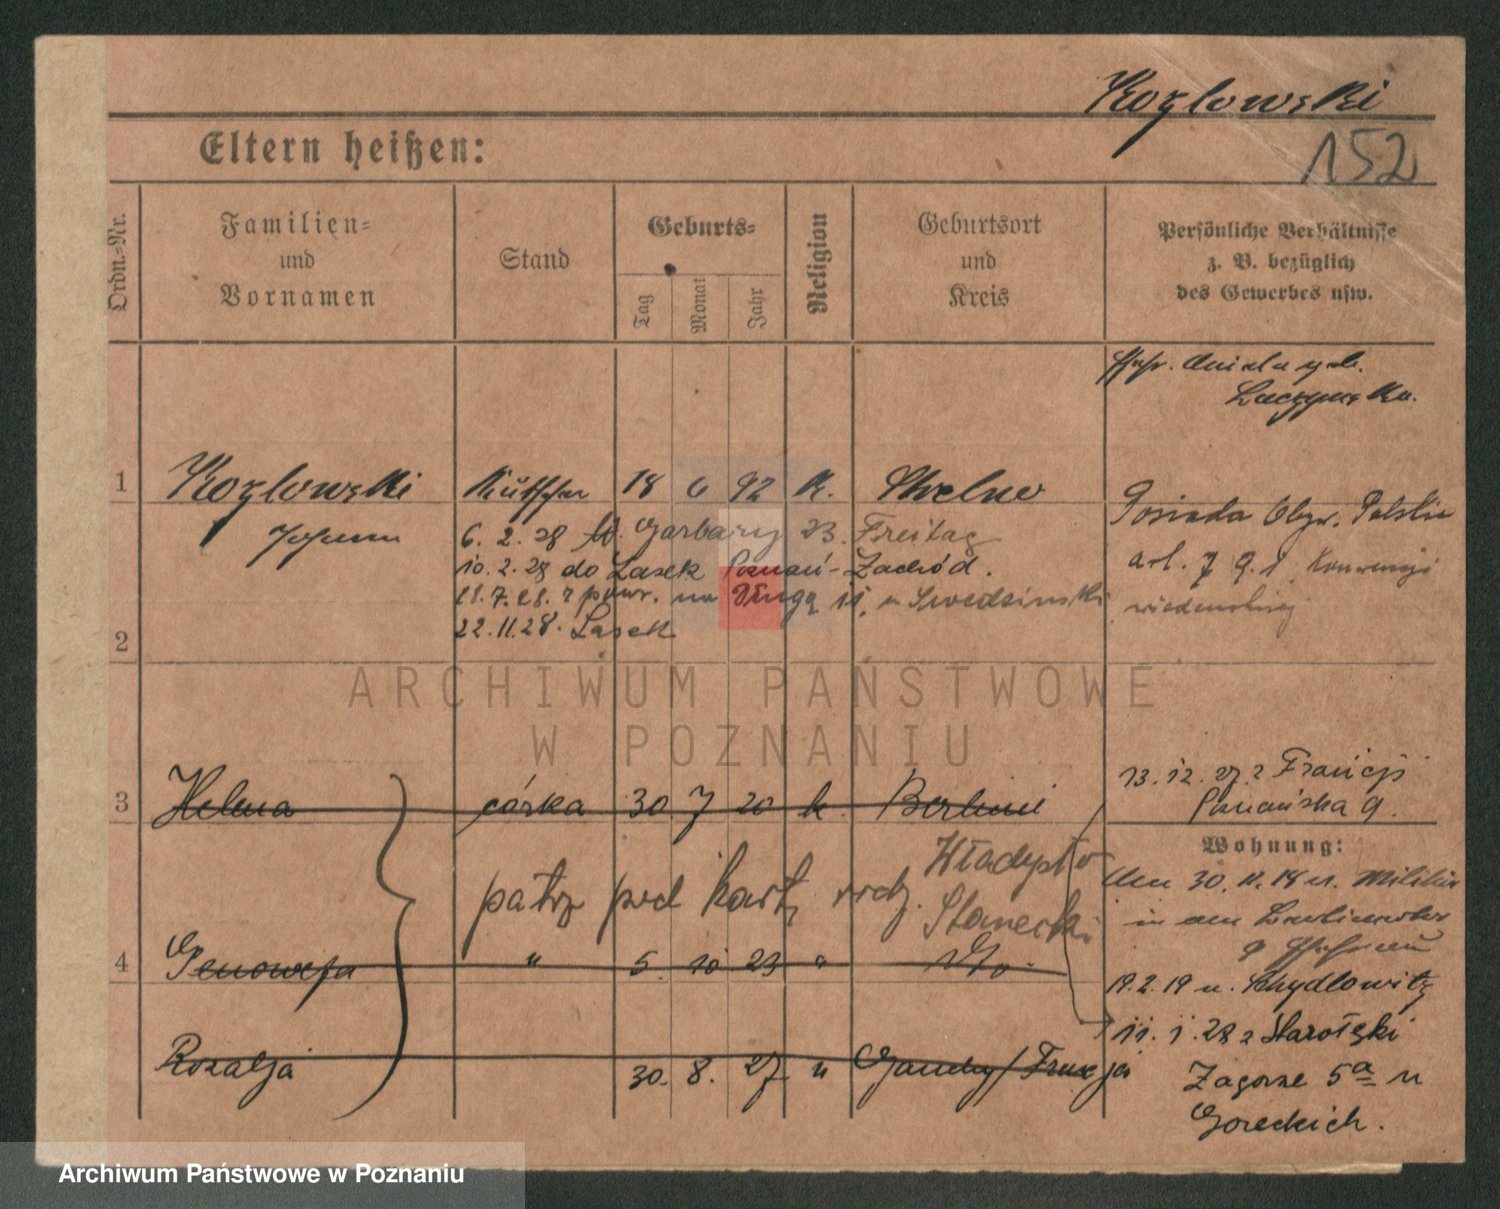 Kozlowski
152
Eltern heißen:
Ordn.-Nr.
Familien-
und
Vornamen
Stand
Geburts-
Tag
Monat
Jahr
Religion
Geburtsort
und
Kreis
Persönliche Verhältnisse
z. B. bezüglich
des Gewerbes usw.
1 Kozlowski Kutscher 18 6 92 K. Strelno
Johann
Posiada Obyw. Polskie
art. 7 9.1 Konwencji
wiedenskiej
6. 2. 28 Garbary 23. Freitag
10. 2. 28 do Lasek Poznań-Zachód.
z pow. na Długą 11, u
2
22. 11. 28. Lasek
ARCHIWUM PAŃSTWOWE
W POZNANIU
13. 12. 27 z Francji
Poznańska 9.
3 Helena córka 30 7 20 k. Berlinie
Wohnung:
patrz pod kartą rodz. Władysław
Stanecki
30. 11. 18 v. Militär
in
4 Genowefa " 5. 10 23 "
19. 2. 19 u. Chydlowitz
11. 1. 28 z Starołęki
Rozalja 30. 8. 27 " Francja
Zagorze 5a u
Goreckich.
Archiwum Państwowe w Poznaniu